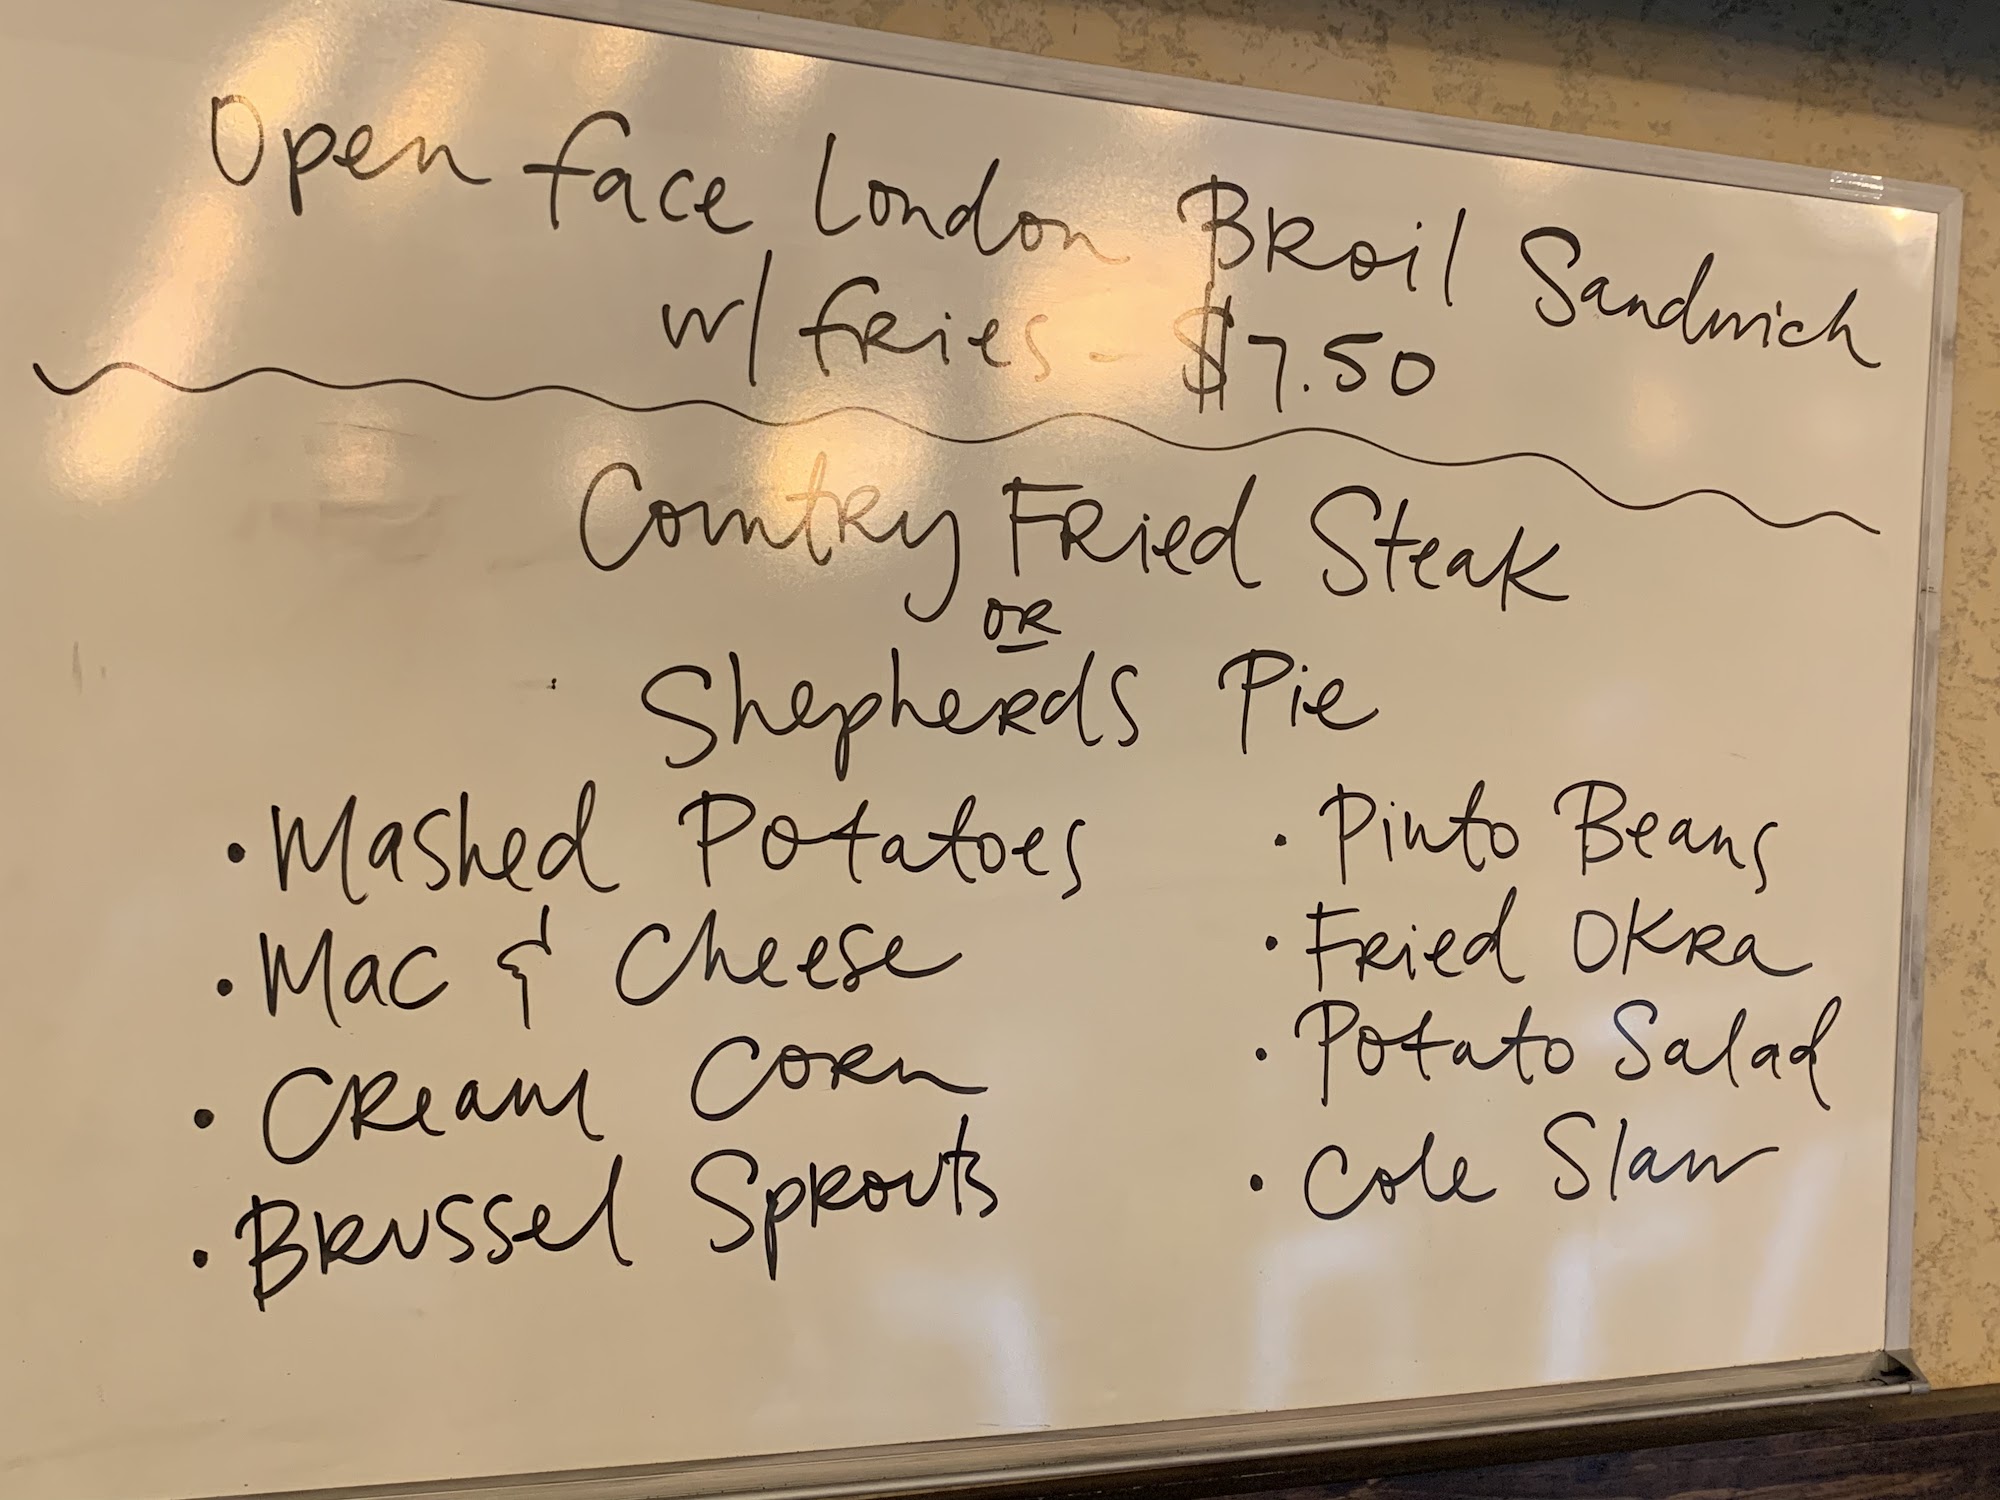 Open face London BRoil Sandwich
w/ fRies - $7.50
CountRy FRied Steak
OR
ShepheRds Pie
• Mashed Potatoes
• Mac & Cheese
• CReam CoRn
• BRussel SpRouts
• Pinto Beans
• FRied OKRa
• Potato Salad
• Cole Slaw